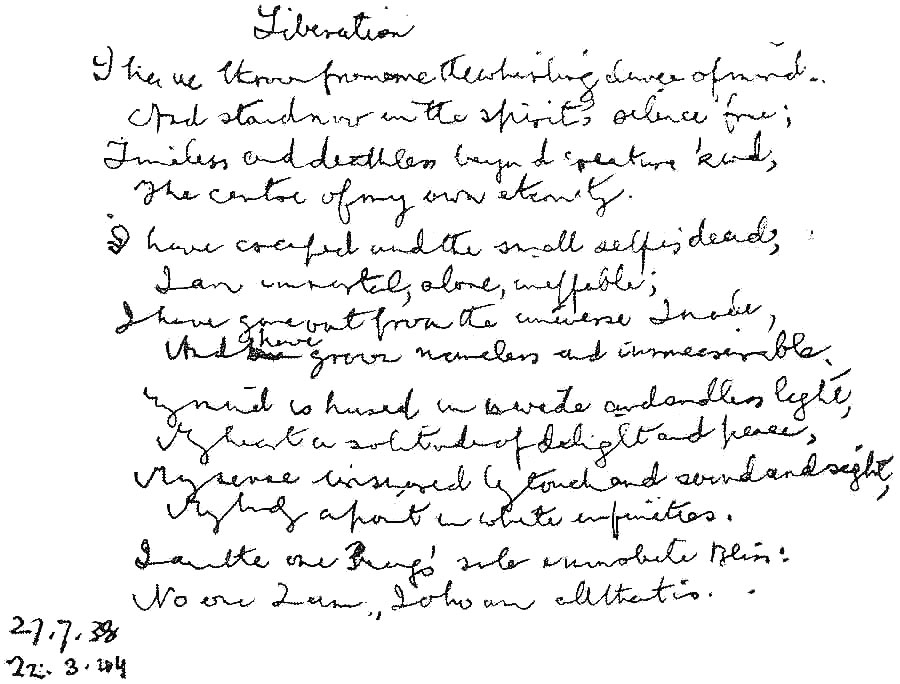 Liberation
I have thrown from me the whirling dance of mind
And stand now in the spirit's silence free;
Timeless and deathless beyond creature kind,
The centre of my own eternity.
I have escaped and the small self is dead;
I am immortal, alone, ineffable;
I have gone out from the universe I made,
And have grown nameless and immeasurable.
My mind is hushed in a wide and endless light,
My heart a solitude of delight and peace,
My sense unsnared by touch and sound and sight,
My body a point in white infinities.
I am the one Being's sole immobile Bliss:
No one I am, I who am all that is.
27.7.38
22.3.44